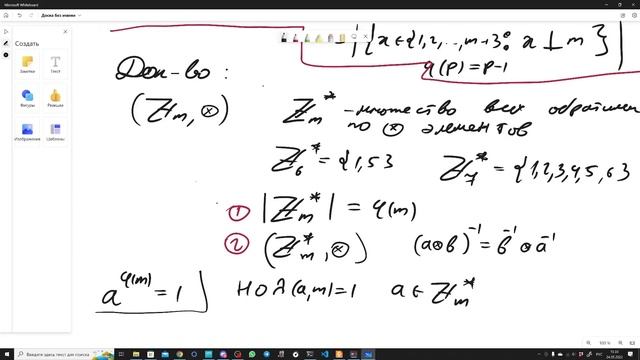 Microsoft Whiteboard
Доска без имени
Создать
Заметки
Текст
Фигуры
Реакции
Изображения
Шаблоны
= |{x ∈ {1,2,...,m} : x ⊥ m}|
φ(p) = p-1
Док-во:
(ℤm, ⊗) ℤ*m - множество всех обратимых
по ⊗ элементов
ℤ*6 = {1,5} ℤ*7 = {1,2,3,4,5,6}
① |ℤ*m| = φ(m)
② (ℤ*m, ⊗) (a⊗b)⁻¹ = b⁻¹ ⊗ a⁻¹
a^φ(m) = 1 НОД(a,m)=1 a ∈ ℤ*m
100 %
Введите здесь текст для поиска
РУС